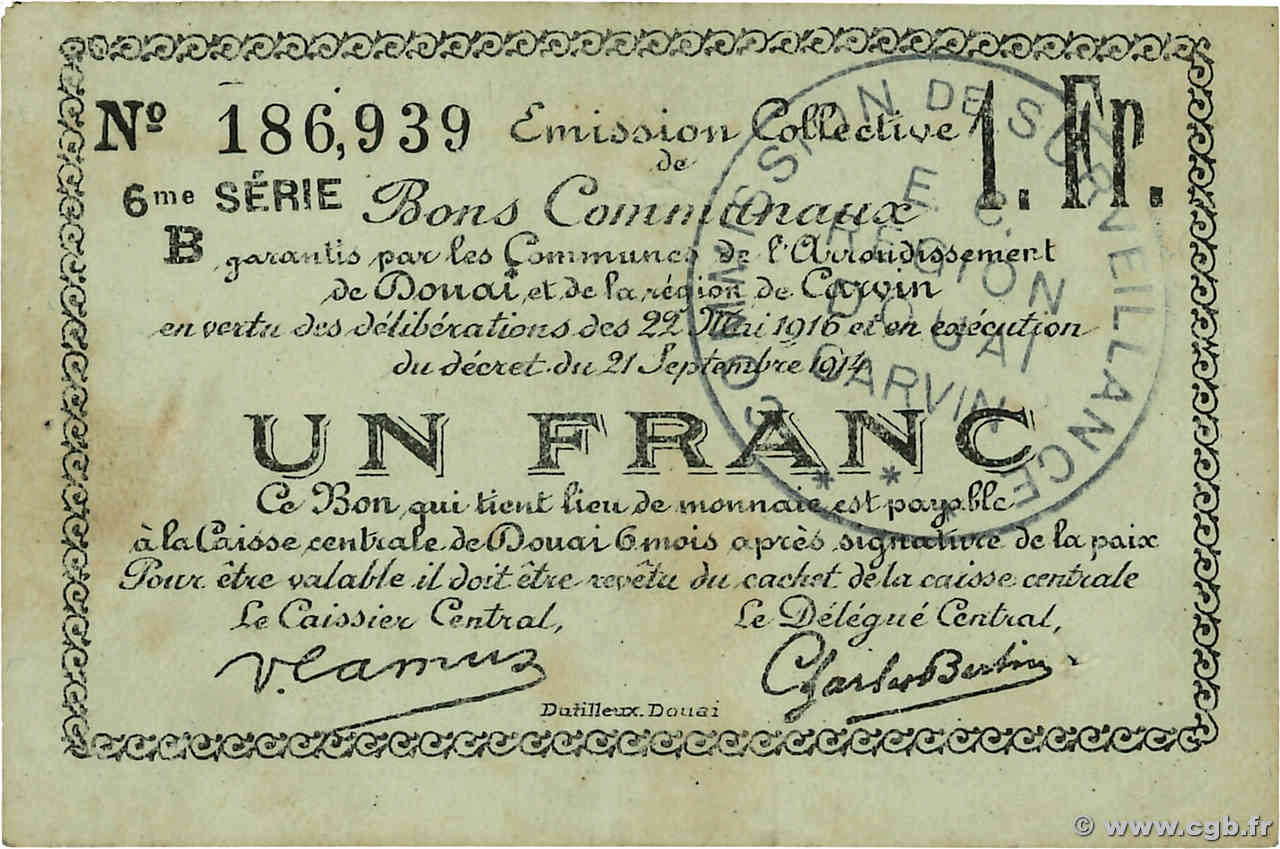 Nº 186,939 Emission Collective 1. Fr.
de
6me SÉRIE Bons Communaux
B garantis par les Communes de l'Arrondissement
de Douai et de la région de Carvin
en vertu des délibérations des 22 Mai 1916 et en exécution
du décret du 21 Septembre 1914
UN FRANC
Ce Bon qui tient lieu de monnaie est payable
à la Caisse centrale de Douai 6 mois après signature de la paix
Pour être valable il doit être revêtu du cachet de la caisse centrale
Le Caissier Central, Le Délégué Central,
V. Camus Charles Bertin
Dutilleux. Douai
COMMISSION DE SURVEILLANCE
E. C.
REGION
DOUAI
CARVIN
* *
© www.cgb.fr